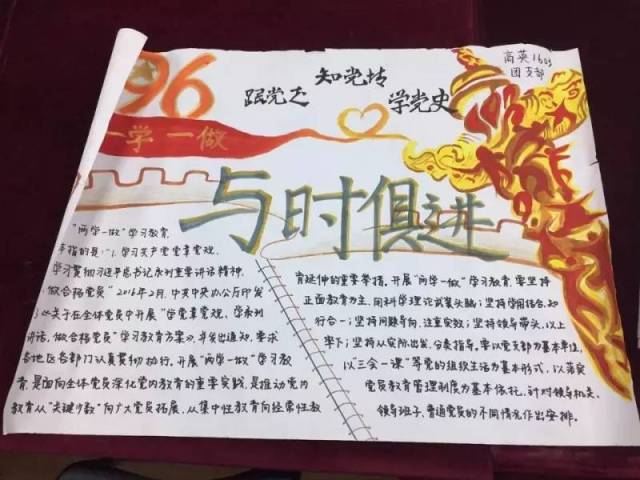 96
高英1603
团支部
跟党走
知党情
学党史
一学一做
与时俱进
"两学一做"学习教育,
指的是:"1.学习共产党党章党规,
学习贯彻习近平总书记系列重要讲话精神,
做合格党员"2016年2月,中共中央办公厅印发
《关于在全体党员中开展"学党章党规,学系列
讲话,做合格党员"学习教育方案》,并发出通知,要求
各地区各部门认真贯彻执行.开展"两学一做"学习教
育,是面向全体党员深化党内教育的重要实践,是推动党内
教育从"关键少数"向广大党员拓展,从集中性教育向经常性教
育延伸的重要举措.开展"两学一做"学习教育,要坚持
正面教育为主,用科学理论武装头脑;坚持学用结合,知
行合一;坚持问题导向,注重实效;坚持领导带头,以上
率下;坚持从实际出发,分类指导.要以党支部为基本单位,
以"三会一课"等党的组织生活为基本形式,以落实
党员教育管理制度为基本依托,针对领导机关、
领导班子,普通党员的不同情况作出安排.